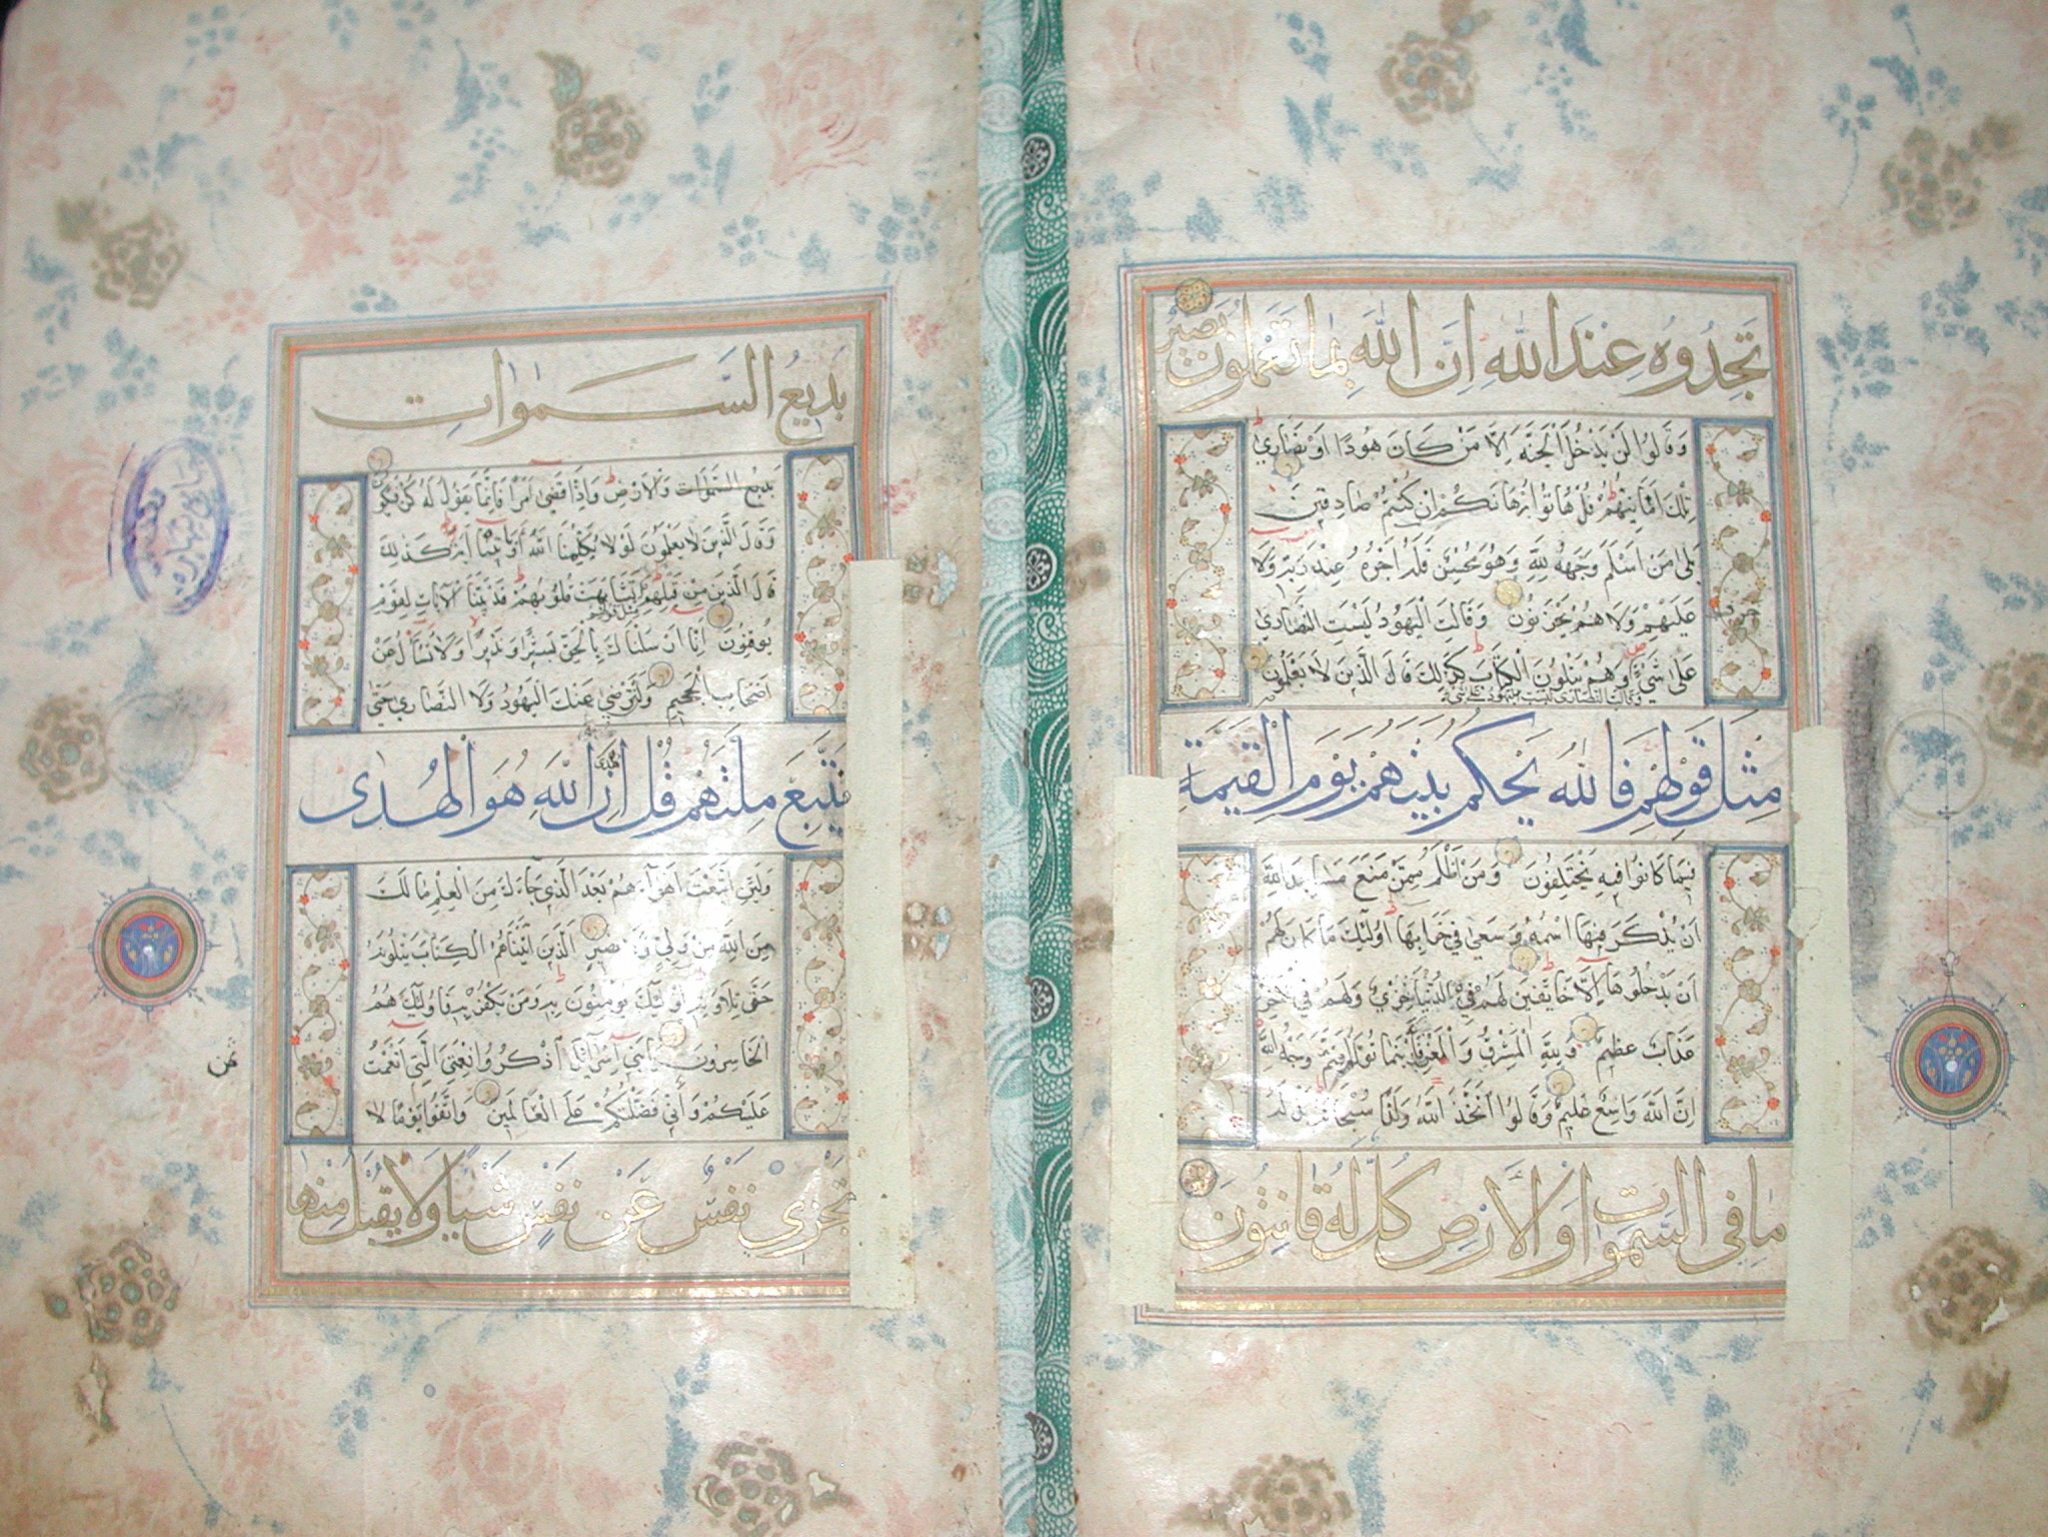 تَجِدُوهُ عِنْدَ اللّٰهِ اِنَّ اللّٰهَ بِمَا تَعْمَلُونَ بَصِيرٌ
وَقَالُوا لَنْ يَدْخُلَ الْجَنَّةَ اِلَّا مَنْ كَانَ هُودًا اَوْ نَصَارَى
تِلْكَ اَمَانِيُّهُمْ قُلْ هَاتُوا بُرْهَانَكُمْ اِنْ كُنْتُمْ صَادِقِينَ
بَلَى مَنْ اَسْلَمَ وَجْهَهُ لِلّٰهِ وَهُوَ مُحْسِنٌ فَلَهُ اَجْرُهُ عِنْدَ رَبِّهِ وَلَا خوف
عَلَيْهِمْ وَلَا هُمْ يَحْزَنُونَ وَقَالَتِ الْيَهُودُ لَيْسَتِ النَّصَارَى
عَلَى شَيْءٍ وَهُمْ يَتْلُونَ الْكِتَابَ كَذٰلِكَ قَالَ الَّذِينَ لَا يَعْلَمُونَ
وقالت النصارى ليست اليهود على شئ
مِثْلَ قَوْلِهِمْ فَاللّٰهُ يَحْكُمُ بَيْنَهُمْ يَوْمَ الْقِيٰمَةِ
فِيمَا كَانُوا فِيهِ يَخْتَلِفُونَ وَمَنْ اَظْلَمُ مِمَّنْ مَنَعَ مَسَاجِدَ اللّٰهِ
اَنْ يُذْكَرَ فِيهَا اسْمُهُ وَسَعَى فِي خَرَابِهَا اُولٰئِكَ مَا كَانَ لَهُمْ
اَنْ يَدْخُلُوهَا اِلَّا خَائِفِينَ لَهُمْ فِي الدُّنْيَا خِزْيٌ وَلَهُمْ فِي الْاٰخِرَةِ
عَذَابٌ عَظِيمٌ وَلِلّٰهِ الْمَشْرِقُ وَالْمَغْرِبُ فَاَيْنَمَا تُوَلُّوا فَثَمَّ وَجْهُ اللّٰهِ
اِنَّ اللّٰهَ وَاسِعٌ عَلِيمٌ وَقَالُوا اتَّخَذَ اللّٰهُ وَلَدًا سُبْحَانَهُ بَلْ لَهُ
مَا فِي السَّمٰوَاتِ وَالْاَرْضِ كُلٌّ لَهُ قَانِتُونَ
بَدِيعُ السَّمٰوَاتِ
بَدِيعُ السَّمٰوَاتِ وَالْاَرْضِ وَاِذَا قَضَى اَمْرًا فَاِنَّمَا يَقُولُ لَهُ كُنْ فَيَكُونُ
وَقَالَ الَّذِينَ لَا يَعْلَمُونَ لَوْلَا يُكَلِّمُنَا اللّٰهُ اَوْ تَأْتِينَا اٰيَةٌ كَذٰلِكَ
قَالَ الَّذِينَ مِنْ قَبْلِهِمْ مثل قولهم تَشَابَهَتْ قُلُوبُهُمْ قَدْ بَيَّنَّا الْاٰيَاتِ لِقَوْمٍ
يُوقِنُونَ اِنَّا اَرْسَلْنَاكَ بِالْحَقِّ بَشِيرًا وَنَذِيرًا وَلَا تُسْاَلُ عَنْ
اَصْحَابِ الْجَحِيمِ وَلَنْ تَرْضَى عَنْكَ الْيَهُودُ وَلَا النَّصَارَى حَتَّى
تَتَّبِعَ مِلَّتَهُمْ قُلْ اِنَّ هدى اللّٰهِ هُوَ الْهُدَى
وَلَئِنِ اتَّبَعْتَ اَهْوَاءَهُمْ بَعْدَ الَّذِي جَاءَكَ مِنَ الْعِلْمِ مَا لَكَ
مِنَ اللّٰهِ مِنْ وَلِيٍّ وَلَا نَصِيرٍ الَّذِينَ اٰتَيْنَاهُمُ الْكِتَابَ يَتْلُونَهُ
حَقَّ تِلَاوَتِهِ اُولٰئِكَ يُؤْمِنُونَ بِهِ وَمَنْ يَكْفُرْ بِهِ فَاُولٰئِكَ هُمُ
الْخَاسِرُونَ يَا بَنِي اِسْرَائِيلَ اذْكُرُوا نِعْمَتِيَ الَّتِي اَنْعَمْتُ
عَلَيْكُمْ وَاَنِّي فَضَّلْتُكُمْ عَلَى الْعَالَمِينَ وَاتَّقُوا يَوْمًا لَا
تَجْزِي نَفْسٌ عَنْ نَفْسٍ شَيْئًا وَلَا يُقْبَلُ مِنْهَا
ثمن